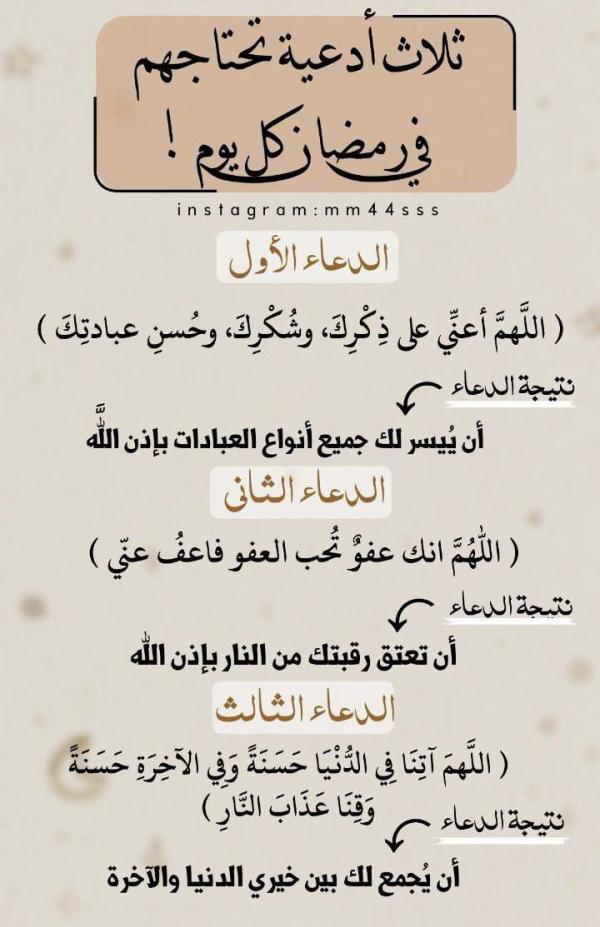 ثلاث أدعية تحتاجهم
في رمضان كل يوم !
instagram:mm44sss
الدعاء الأول
( اللَّهمَّ أعنِّي على ذِكْرِكَ، وشُكْرِكَ، وحُسنِ عبادتِكَ )
نتيجة الدعاء
أن يُيسر لك جميع أنواع العبادات بإذن اللَّه
الدعاء الثانى
( اللهُمَّ انك عفوٌ تُحب العفو فاعفُ عنّي )
نتيجة الدعاء
أن تعتق رقبتك من النار بإذن الله
الدعاء الثالث
( اللَّهمَ آتِنَا فِي الدُّنْيَا حَسَنَةً وَفِي الآخِرَةِ حَسَنَةً
وَقِنَا عَذَابَ النَّارِ )
نتيجة الدعاء
أن يُجمع لك بين خيري الدنيا والآخرة